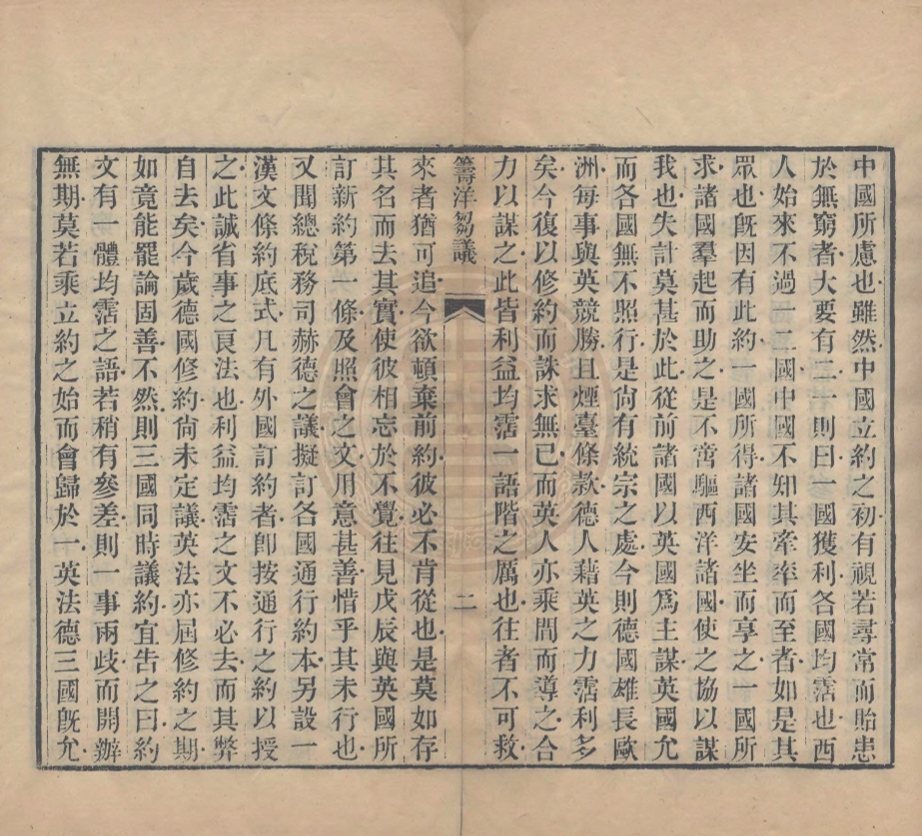 中國所慮也雖然中國立約之初有視若尋常而貽患
於無窮者大要有二一則曰一國獲利各國均霑也西
人始來不過一二國中國不知其牽率而至者如是其
眾也旣因有此約一國所得諸國安坐而享之一國所
求諸國羣起而助之是不啻驅西洋諸國使之協以謀
我也失計莫甚於此從前諸國以英國爲主謀英國允
而各國無不照行是尙有統宗之處今則德國雄長歐
洲每事與英競勝且煙臺條款德人藉英之力霑利多
矣今復以修約而誅求無已而英人亦乘間而導之合
力以謀之此皆利益均霑一語階之厲也往者不可救
籌洋芻議
二
來者猶可追今欲頓棄前約彼必不肯從也是莫如存
其名而去其實使彼相忘於不覺往見戊辰與英國所
訂新約第一條及照會之文用意甚善惜乎其未行也
又聞總稅務司赫德之議擬訂各國通行約本另設一
漢文條約底式凡有外國訂約者卽按通行之約以授
之此誠省事之良法也利益均霑之文不必去而其弊
自去矣今歲德國修約尙未定議英法亦屆修約之期
如竟能罷論固善不然則三國同時議約宜告之曰約
文有一體均霑之語若稍有參差則一事兩歧而開辦
無期莫若乘立約之始而會歸於一英法德三國旣允